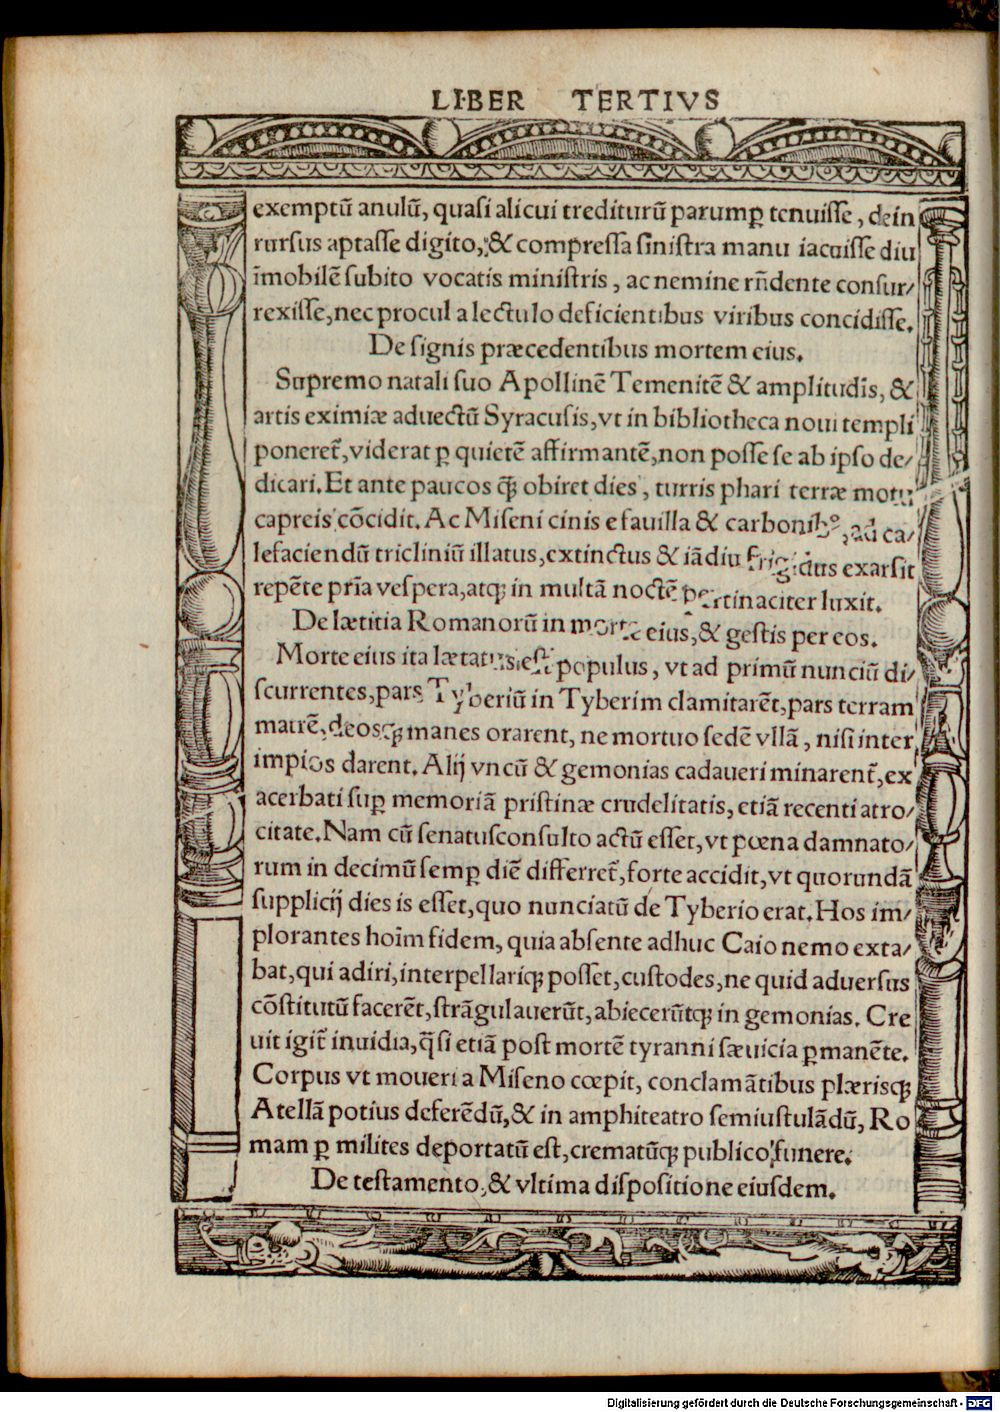 LIBER TERTIVS
exemptū anulū, quasi alicui trediturū parumꝑ tenuisse, dein
rursus aptasse digito, & compressa sinistra manu iacuisse diu
īmobilē subito vocatis ministris, ac nemine rn̄dente consur/
rexisse, nec procul a lectulo deficientibus viribus concidisse.
De signis præcedentibus mortem eius.
Supremo natali suo Apollinē Temenitē & amplitudīs, &
artis eximiæ aduectū Syracusis, vt in bibliotheca noui templi
poneret̄, viderat ꝑ quietē affirmantē, non posse se ab ipso de/
dicari. Et ante paucos q̄ꝫ obiret dies, turris phari terræ motu
capreis cōcidit. Ac Miseni cinis e fauilla & carbonibꝰ, ad ca/
lefaciendū tricliniū illatus, extinctus & iādiu frigidus exarsit
repēte pr̄ia vespera, atqꝫ in multā noctē pertinaciter luxit.
De lætitia Romanorū in morte eius, & gestis per eos.
Morte eius ita lætatus est populus, vt ad primū nunciū di/
scurrentes, pars Tyberiū in Tyberim clamitarēt, pars terram
matrē, deosqꝫ manes orarent, ne mortuo sedē vllā, nisi inter
impios darent. Alij vncū & gemonias cadaueri minarent̄, ex
acerbati suꝑ memoriā pristinæ crudelitatis, etiā recenti atro/
citate. Nam cū senatusconsulto actū esset, vt pœna damnato/
rum in decimū semꝑ diē differret̄, forte accidit, vt quorundā
supplicij dies is esset, quo nunciatū de Tyberio erat. Hos im/
plorantes hoīm fidem, quia absente adhuc Caio nemo exta/
bat, qui adiri, interpellariqꝫ posset, custodes, ne quid aduersus
cōstitutū facerēt, strāgulauerūt, abiecerūtqꝫ in gemonias. Cre
uit igit̄ inuidia, q̄si etiā post mortē tyranni sæuicia ꝑmanēte.
Corpus vt moueri a Miseno cœpit, conclamātibus plærisqꝫ
Atellā potius deferēdū, & in amphiteatro semiustulādū, Ro
mam ꝑ milites deportatū est, crematūqꝫ publico funere.
De testamento, & vltima dispositione eiusdem.
Digitalisierung gefördert durch die Deutsche Forschungsgemeinschaft - DFG